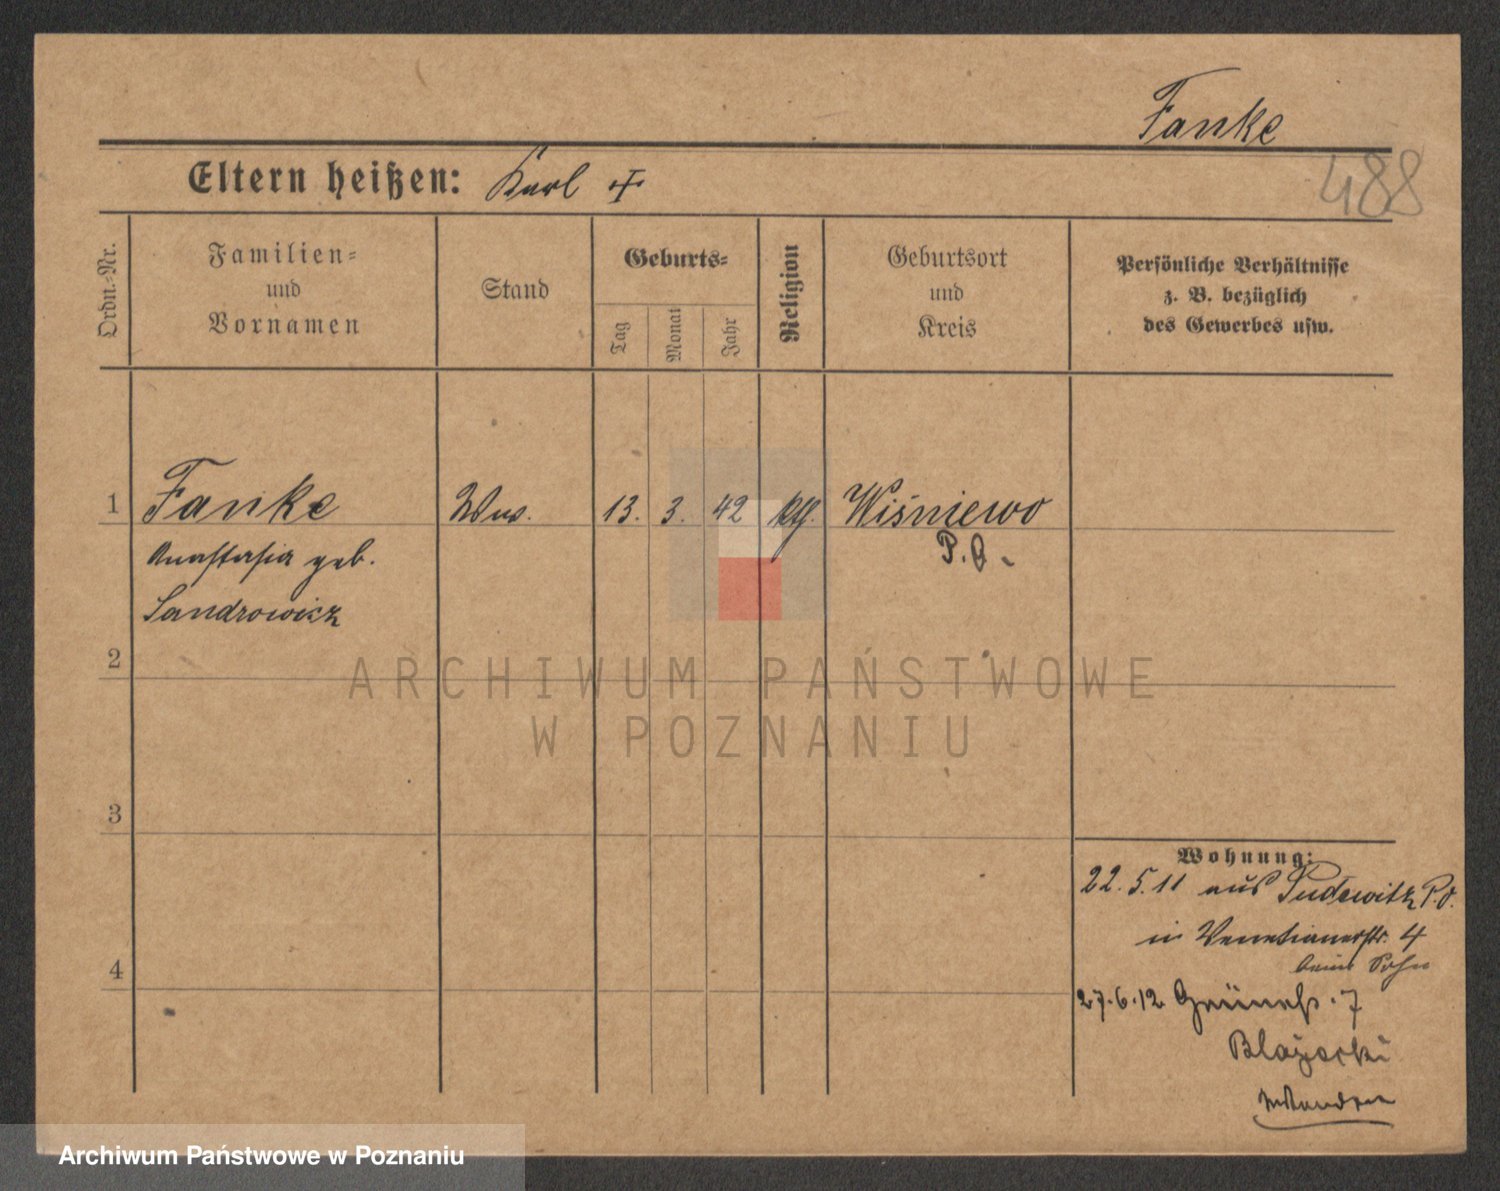 Fanke
488
Eltern heißen: Karl
Ordn.-Nr.
Familien- und Vornamen
Stand
Geburts-
Tag
Monat
Jahr
Religion
Geburtsort und Kreis
Persönliche Verhältnisse z. B. bezüglich des Gewerbes usw.
1 Fanke Ww. 13. 3. 42 kth. Wiśniewo
P. O.
Anastasia geb.
Sandrowicz
2
ARCHIWUM PAŃSTWOWE
W POZNANIU
3
Wohnung:
22. 5. 11 aus Pudewitz P. O.
in Venetianerstr. 4
beim Sohn
4
27. 6. 12 Grünestr. 7
Archiwum Państwowe w Poznaniu